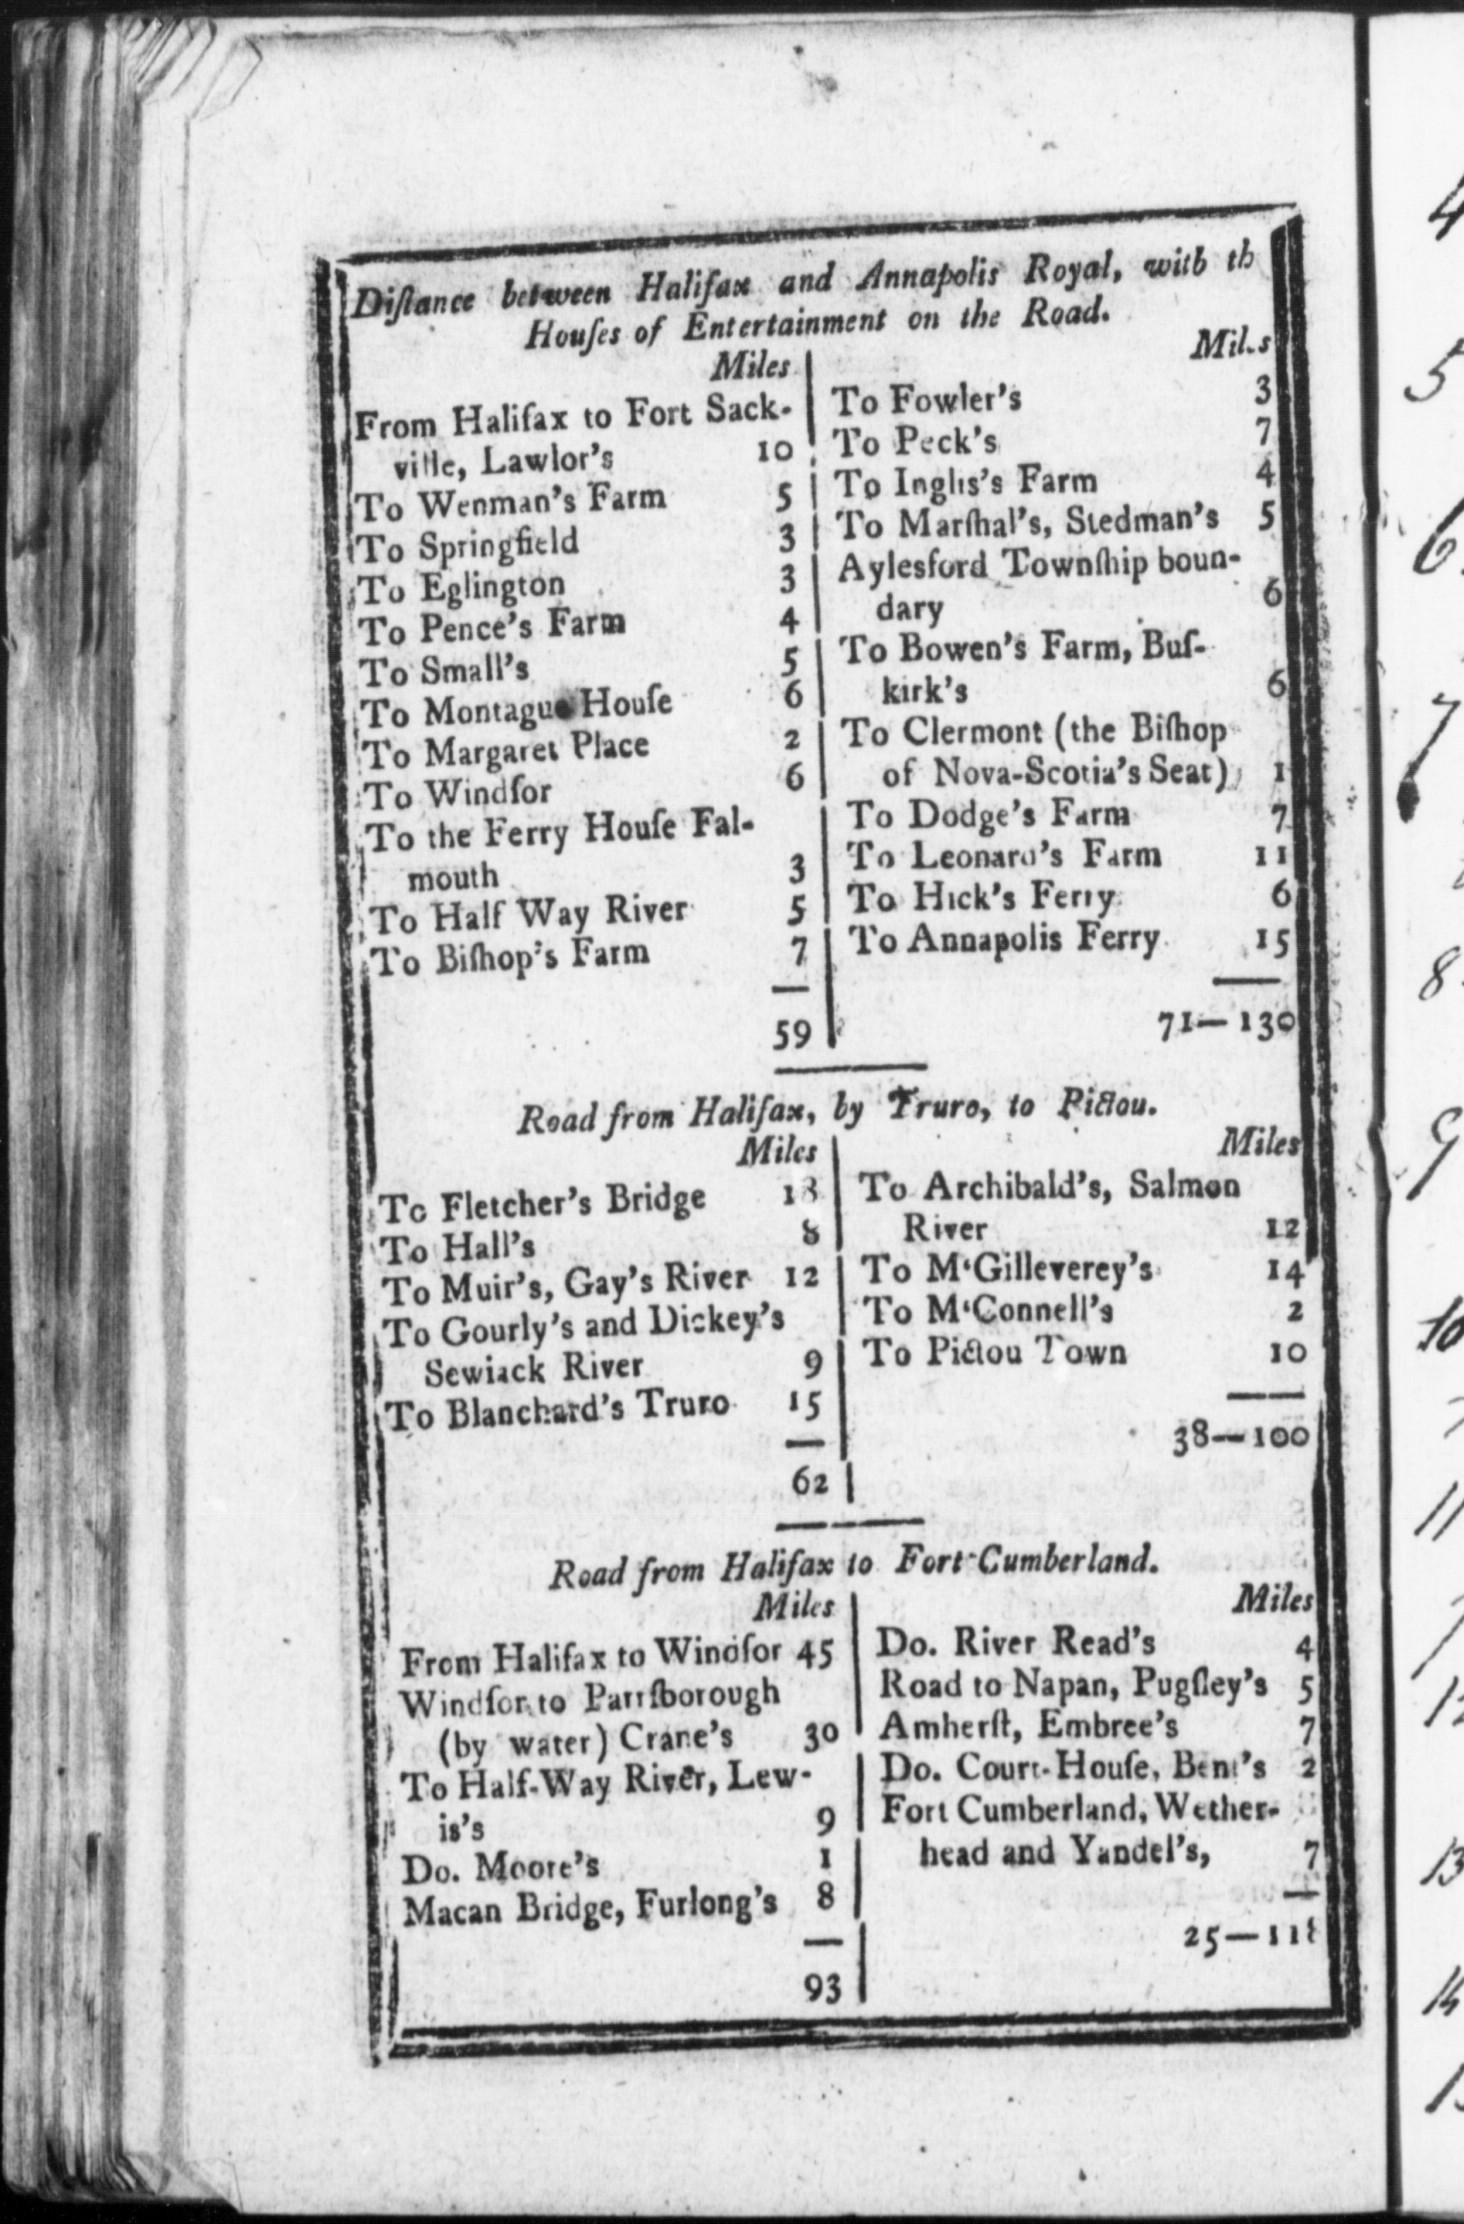 Diſtance between Halifax and Annapolis Royal, with th
Houſes of Entertainment on the Road.
Miles
From Halifax to Fort Sack-
ville, Lawlor's 10
To Wenman's Farm 5
To Springfield 3
To Eglington 3
To Pence's Farm 4
To Small's 5
To Montague Houſe 6
To Margaret Place 2
To Windſor 6
To the Ferry Houſe Fal-
mouth 3
To Half Way River 5
To Biſhop's Farm 7
59
Miles
To Fowler's 3
To Peck's 7
To Inglis's Farm 4
To Marſhal's, Stedman's 5
Aylesford Townſhip boun-
dary 6
To Bowen's Farm, Buſ-
kirk's 6
To Clermont (the Biſhop
of Nova-Scotia's Seat) 1
To Dodge's Farm 7
To Leonard's Farm 11
To Hick's Ferry 6
To Annapolis Ferry 15
71—130
Road from Halifax, by Truro, to Pictou.
Miles
To Fletcher's Bridge 18
To Hall's 8
To Muir's, Gay's River 12
To Gourly's and Dickey's
Sewiack River 9
To Blanchard's Truro 15
62
Miles
To Archibald's, Salmon
River 12
To M'Gilleverey's 14
To M'Connell's 2
To Pictou Town 10
38—100
Road from Halifax to Fort Cumberland.
Miles
From Halifax to Windſor 45
Windſor to Parrſborough
(by water) Crane's 30
To Half-Way River, Lew-
is's 9
Do. Moore's 1
Macan Bridge, Furlong's 8
93
Miles
Do. River Read's 4
Road to Napan, Pugſley's 5
Amherſt, Embree's 7
Do. Court-Houſe, Bent's 2
Fort Cumberland, Wether-
head and Yandel's, 7
25—118
4
5
6
7
8
9
10
11
12
13
14